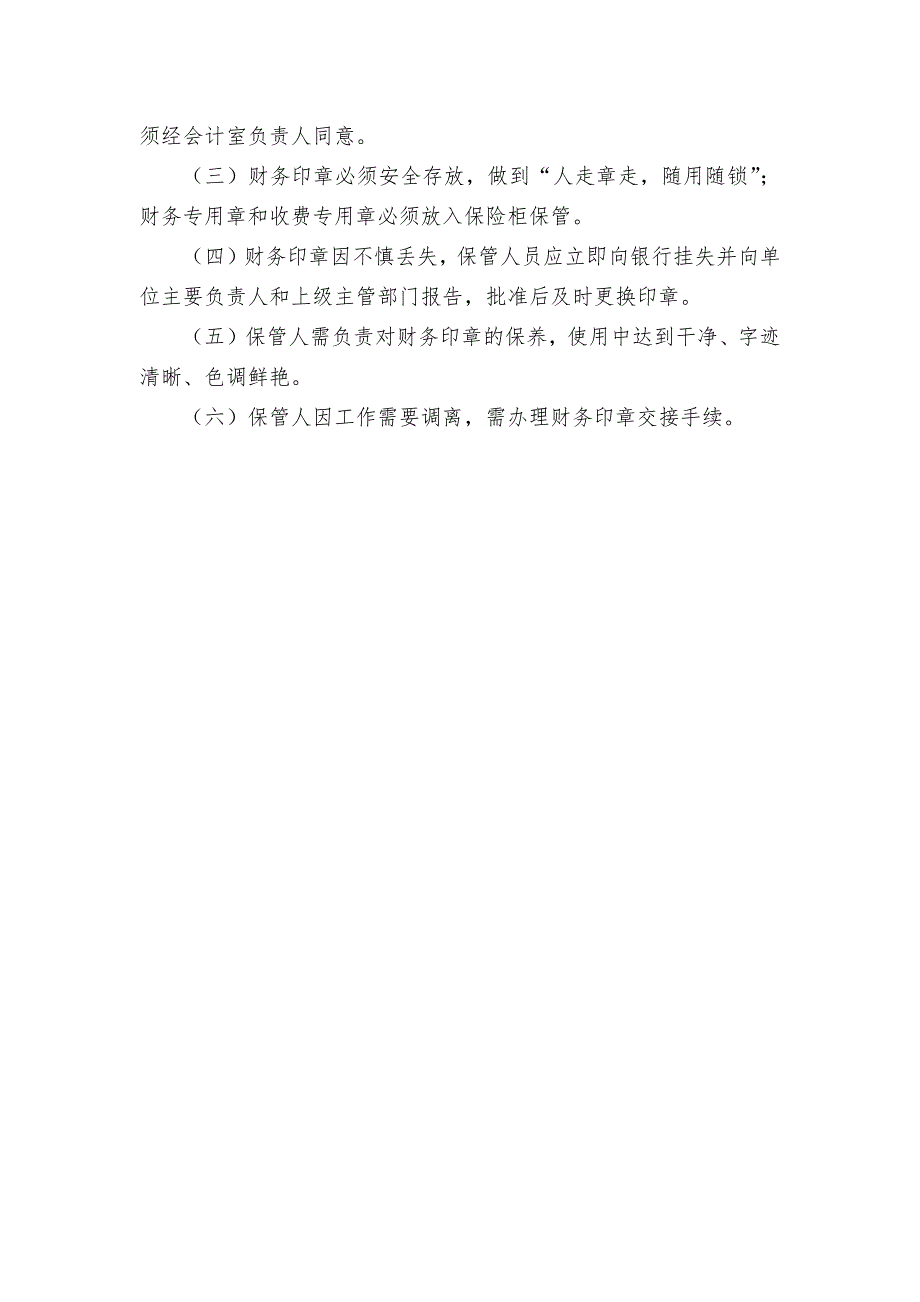 须经会计室负责人同意。
（三）财务印章必须安全存放，做到“人走章走，随用随锁”；
财务专用章和收费专用章必须放入保险柜保管。
（四）财务印章因不慎丢失，保管人员应立即向银行挂失并向单
位主要负责人和上级主管部门报告，批准后及时更换印章。
（五）保管人需负责对财务印章的保养，使用中达到干净、字迹
清晰、色调鲜艳。
（六）保管人因工作需要调离，需办理财务印章交接手续。